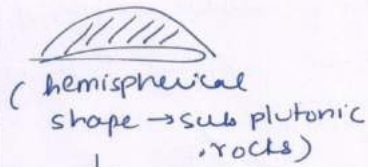 ( hemispherical
shape → sub plutonic
rocks)